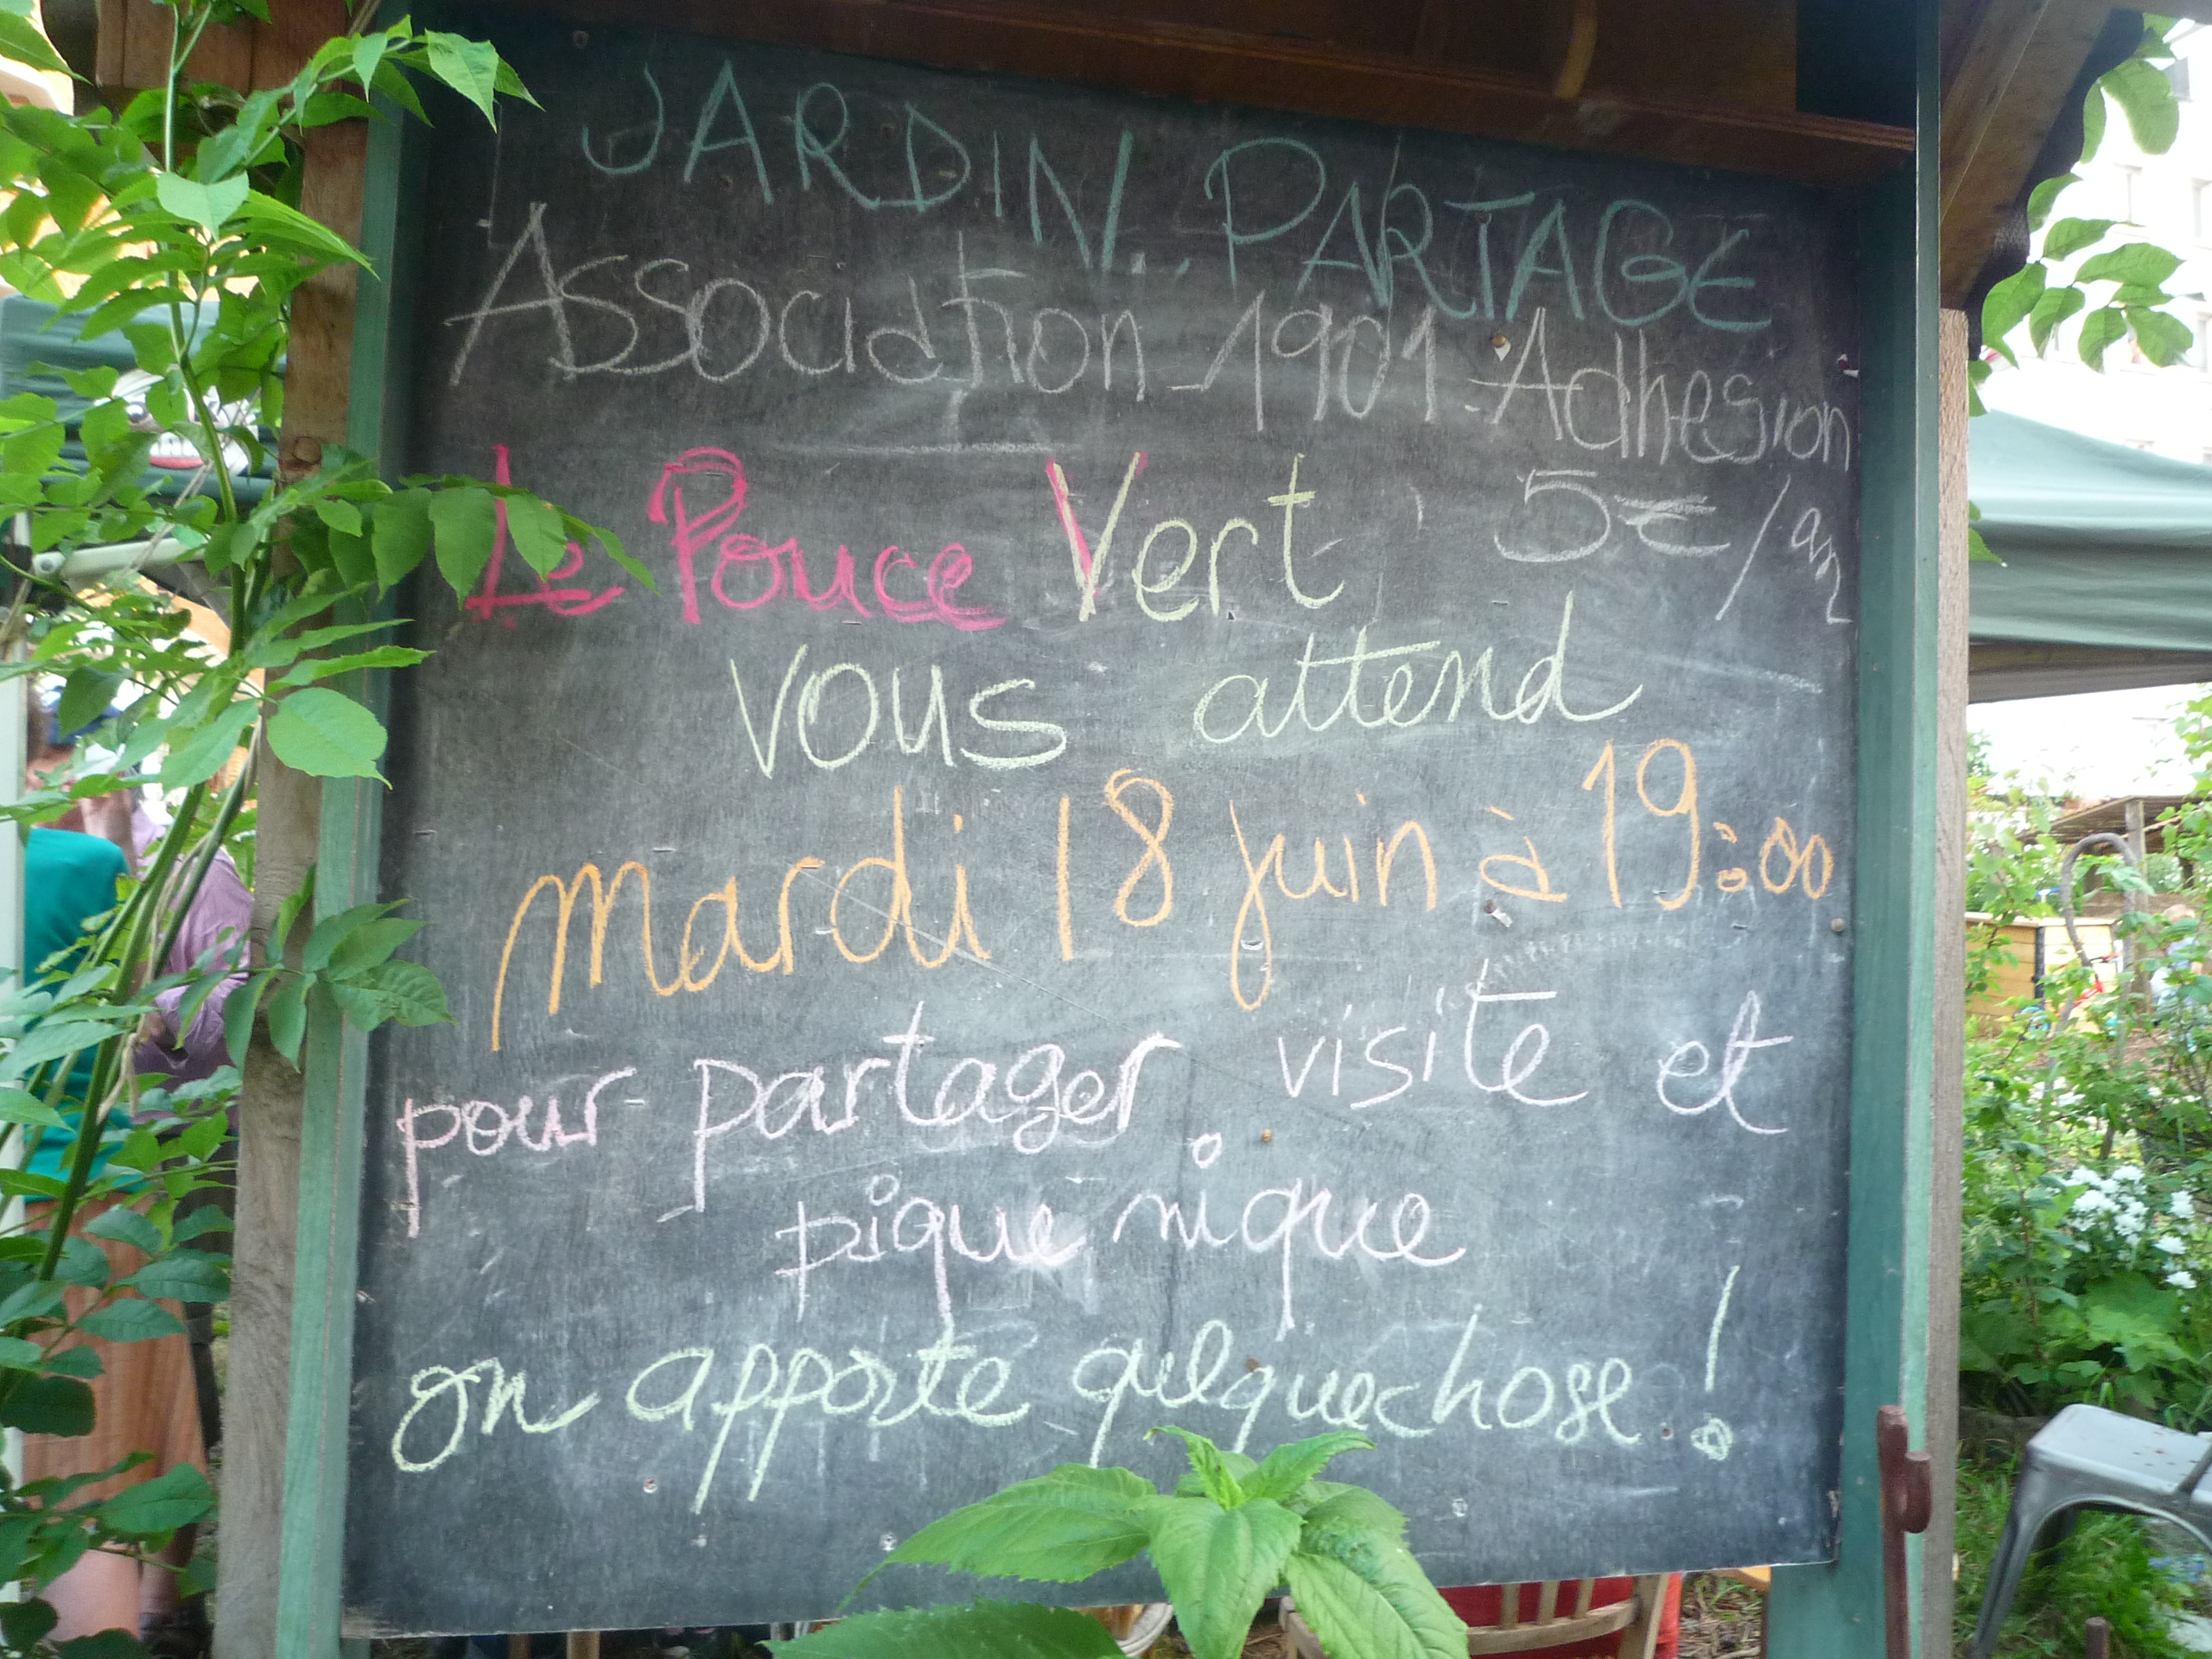 JARDIN PARTAGE
Association 1901. Adhesion
Le Pouce Vert 5€/an
vous attend
mardi 18 juin à 19:00
pour partager visite et
pique nique
on apporte quelquechose!